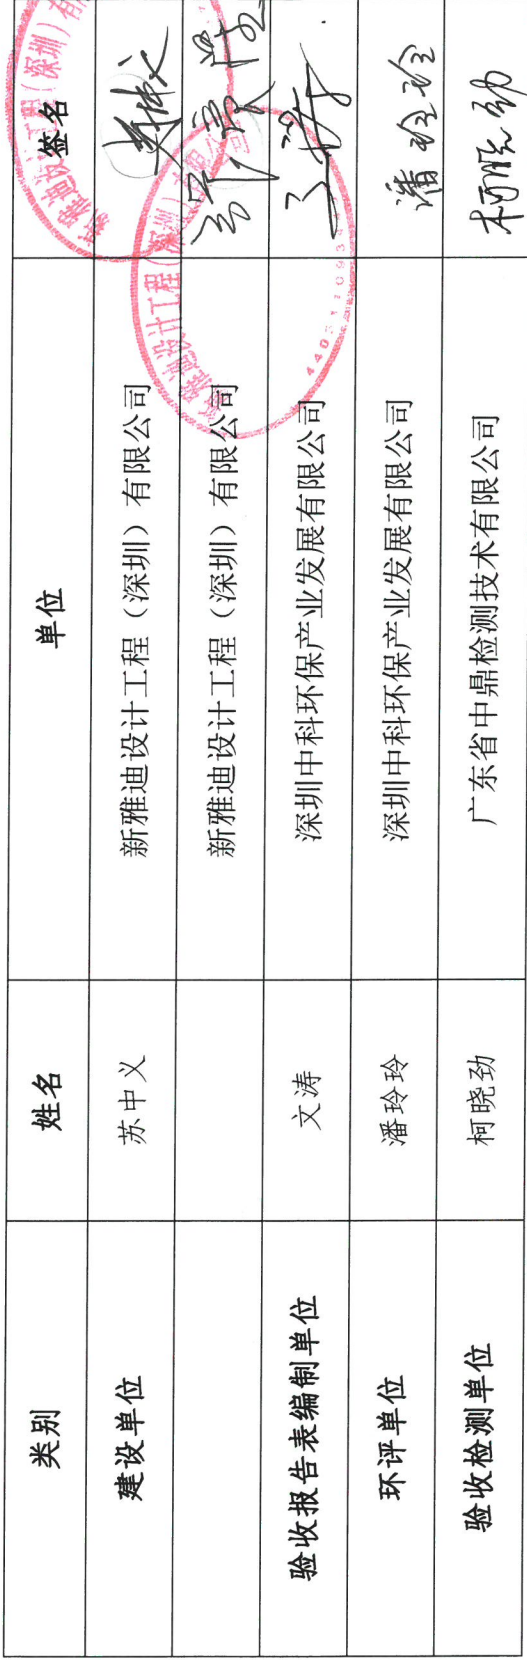 类别 姓名 单位 签名
建设单位 苏中义 新雅迪设计工程（深圳）有限公司
新雅迪设计工程（深圳）有限公司
验收报告表编制单位 文涛 深圳中科环保产业发展有限公司
环评单位 潘玲玲 深圳中科环保产业发展有限公司 潘玲玲
验收检测单位 柯晓劲 广东省中鼎检测技术有限公司 柯晓劲
新雅迪设计工程（深圳）有
新雅迪设计工程（深圳）有限公司